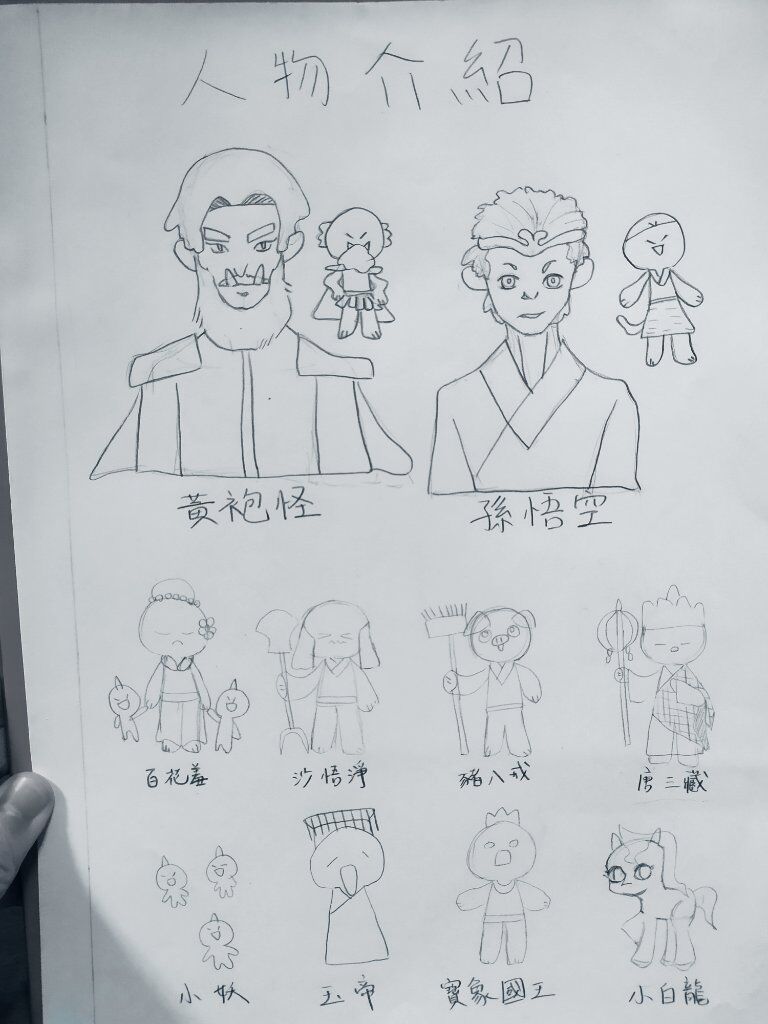 人物介紹
黃袍怪 孫悟空
百花羞 沙悟淨 豬八戒 唐三藏
小妖 玉帝 寶象國王 小白龍